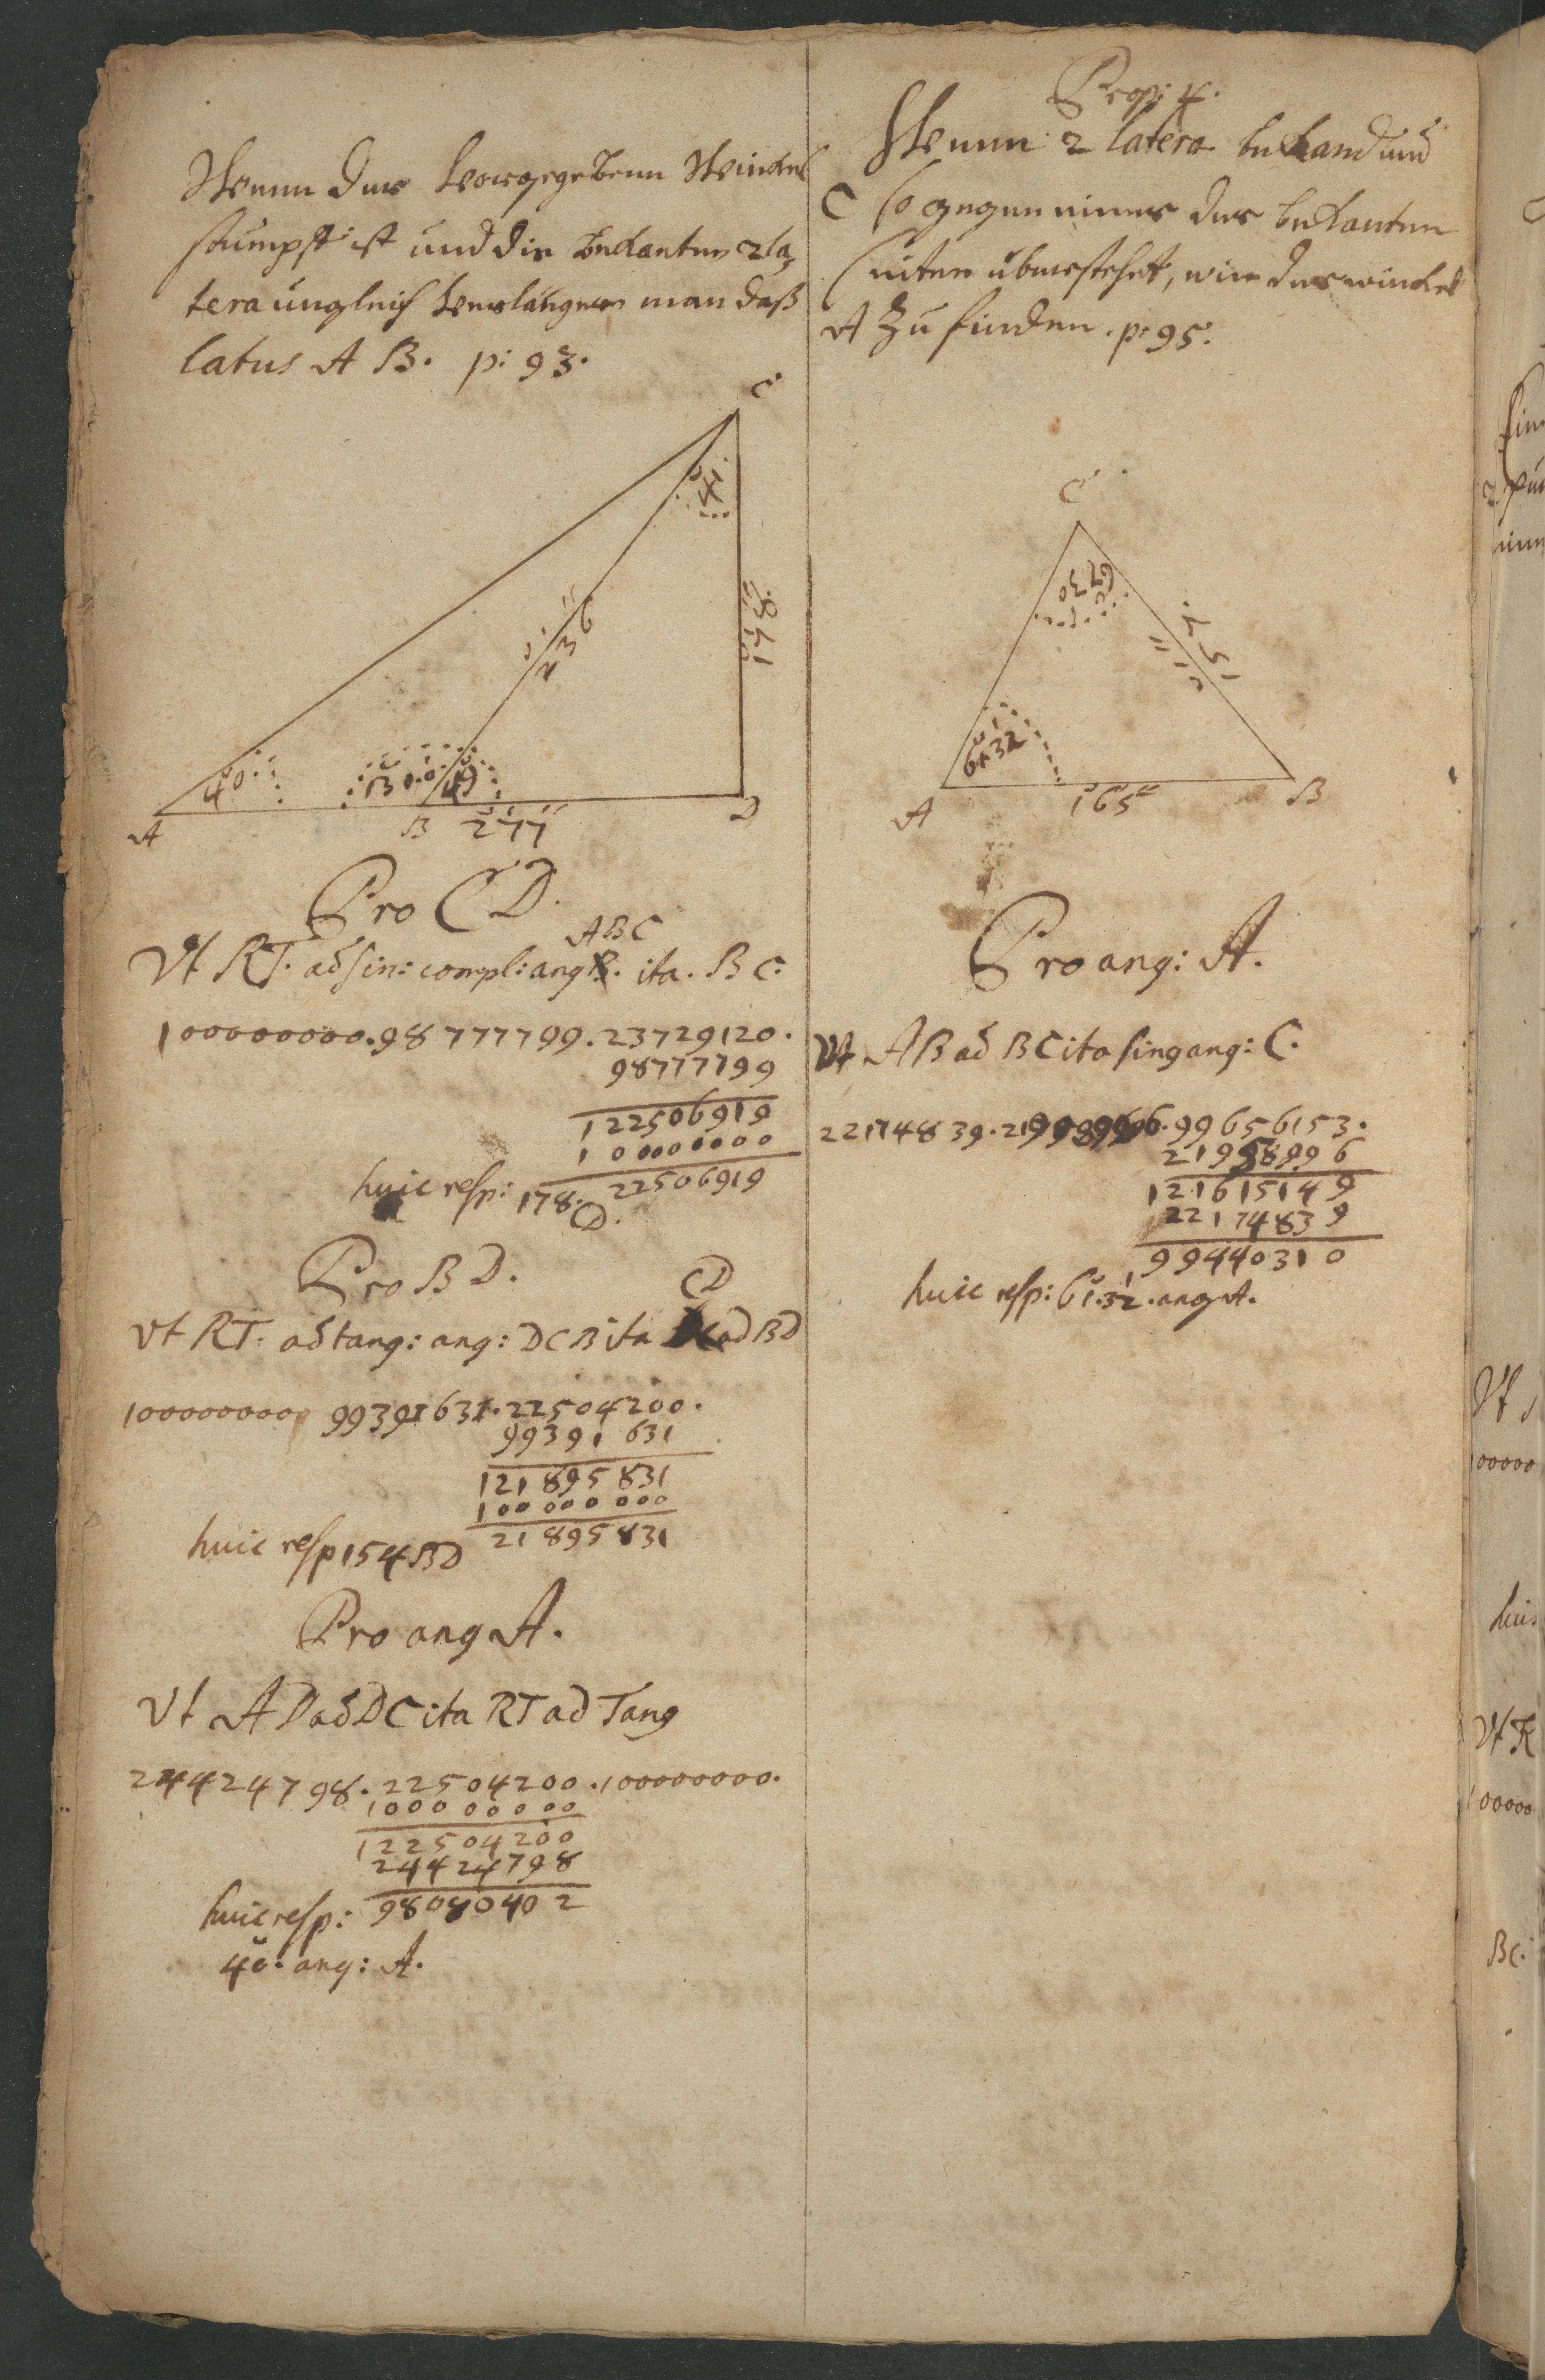 Wenn der vorgegebene Winckel
stumpff ist und die bedanten 2 la
tera ungleich verlängere man daß
latus A B. p: 93.
C
41
178
236
40
131.0
49
A
B
277
D
Pro C D.
ABC
Vt RT. ad sin: compl: ang B. ita. B C.
100000000.98777799.23729120.
98777799
122506919
100000000
huic resp: 178. 22506919
CD.
Pro B D.
CD
Vt RT. ad tang: ang: DCB ita ad BD
100000000 99391631.22504200.
99391631
121895831
100000000
21895831
huic resp 154 BD
Pro ang A.
Vt AD ad DC ita RT ad Tang
24424798.22504200.100000000.
100000000
122504200
24424798
huic resp: 98080402
40. ang: A.
Prop: 4.
Wenn 2 latera bekand und
C so gegen einer der bekanten
seiten überstehet, wie der winckel
A Zu finden. p: 95.
C
67 30
157
61 32
A
165
B
Pro ang: A.
Vt AB ad BC ita sin ang: C.
22174839. 99656153.
21958996
121615149
22174839
99440310
huic resp: 61.32. ang A.
Vt
00000
Vt R
00000
BC.